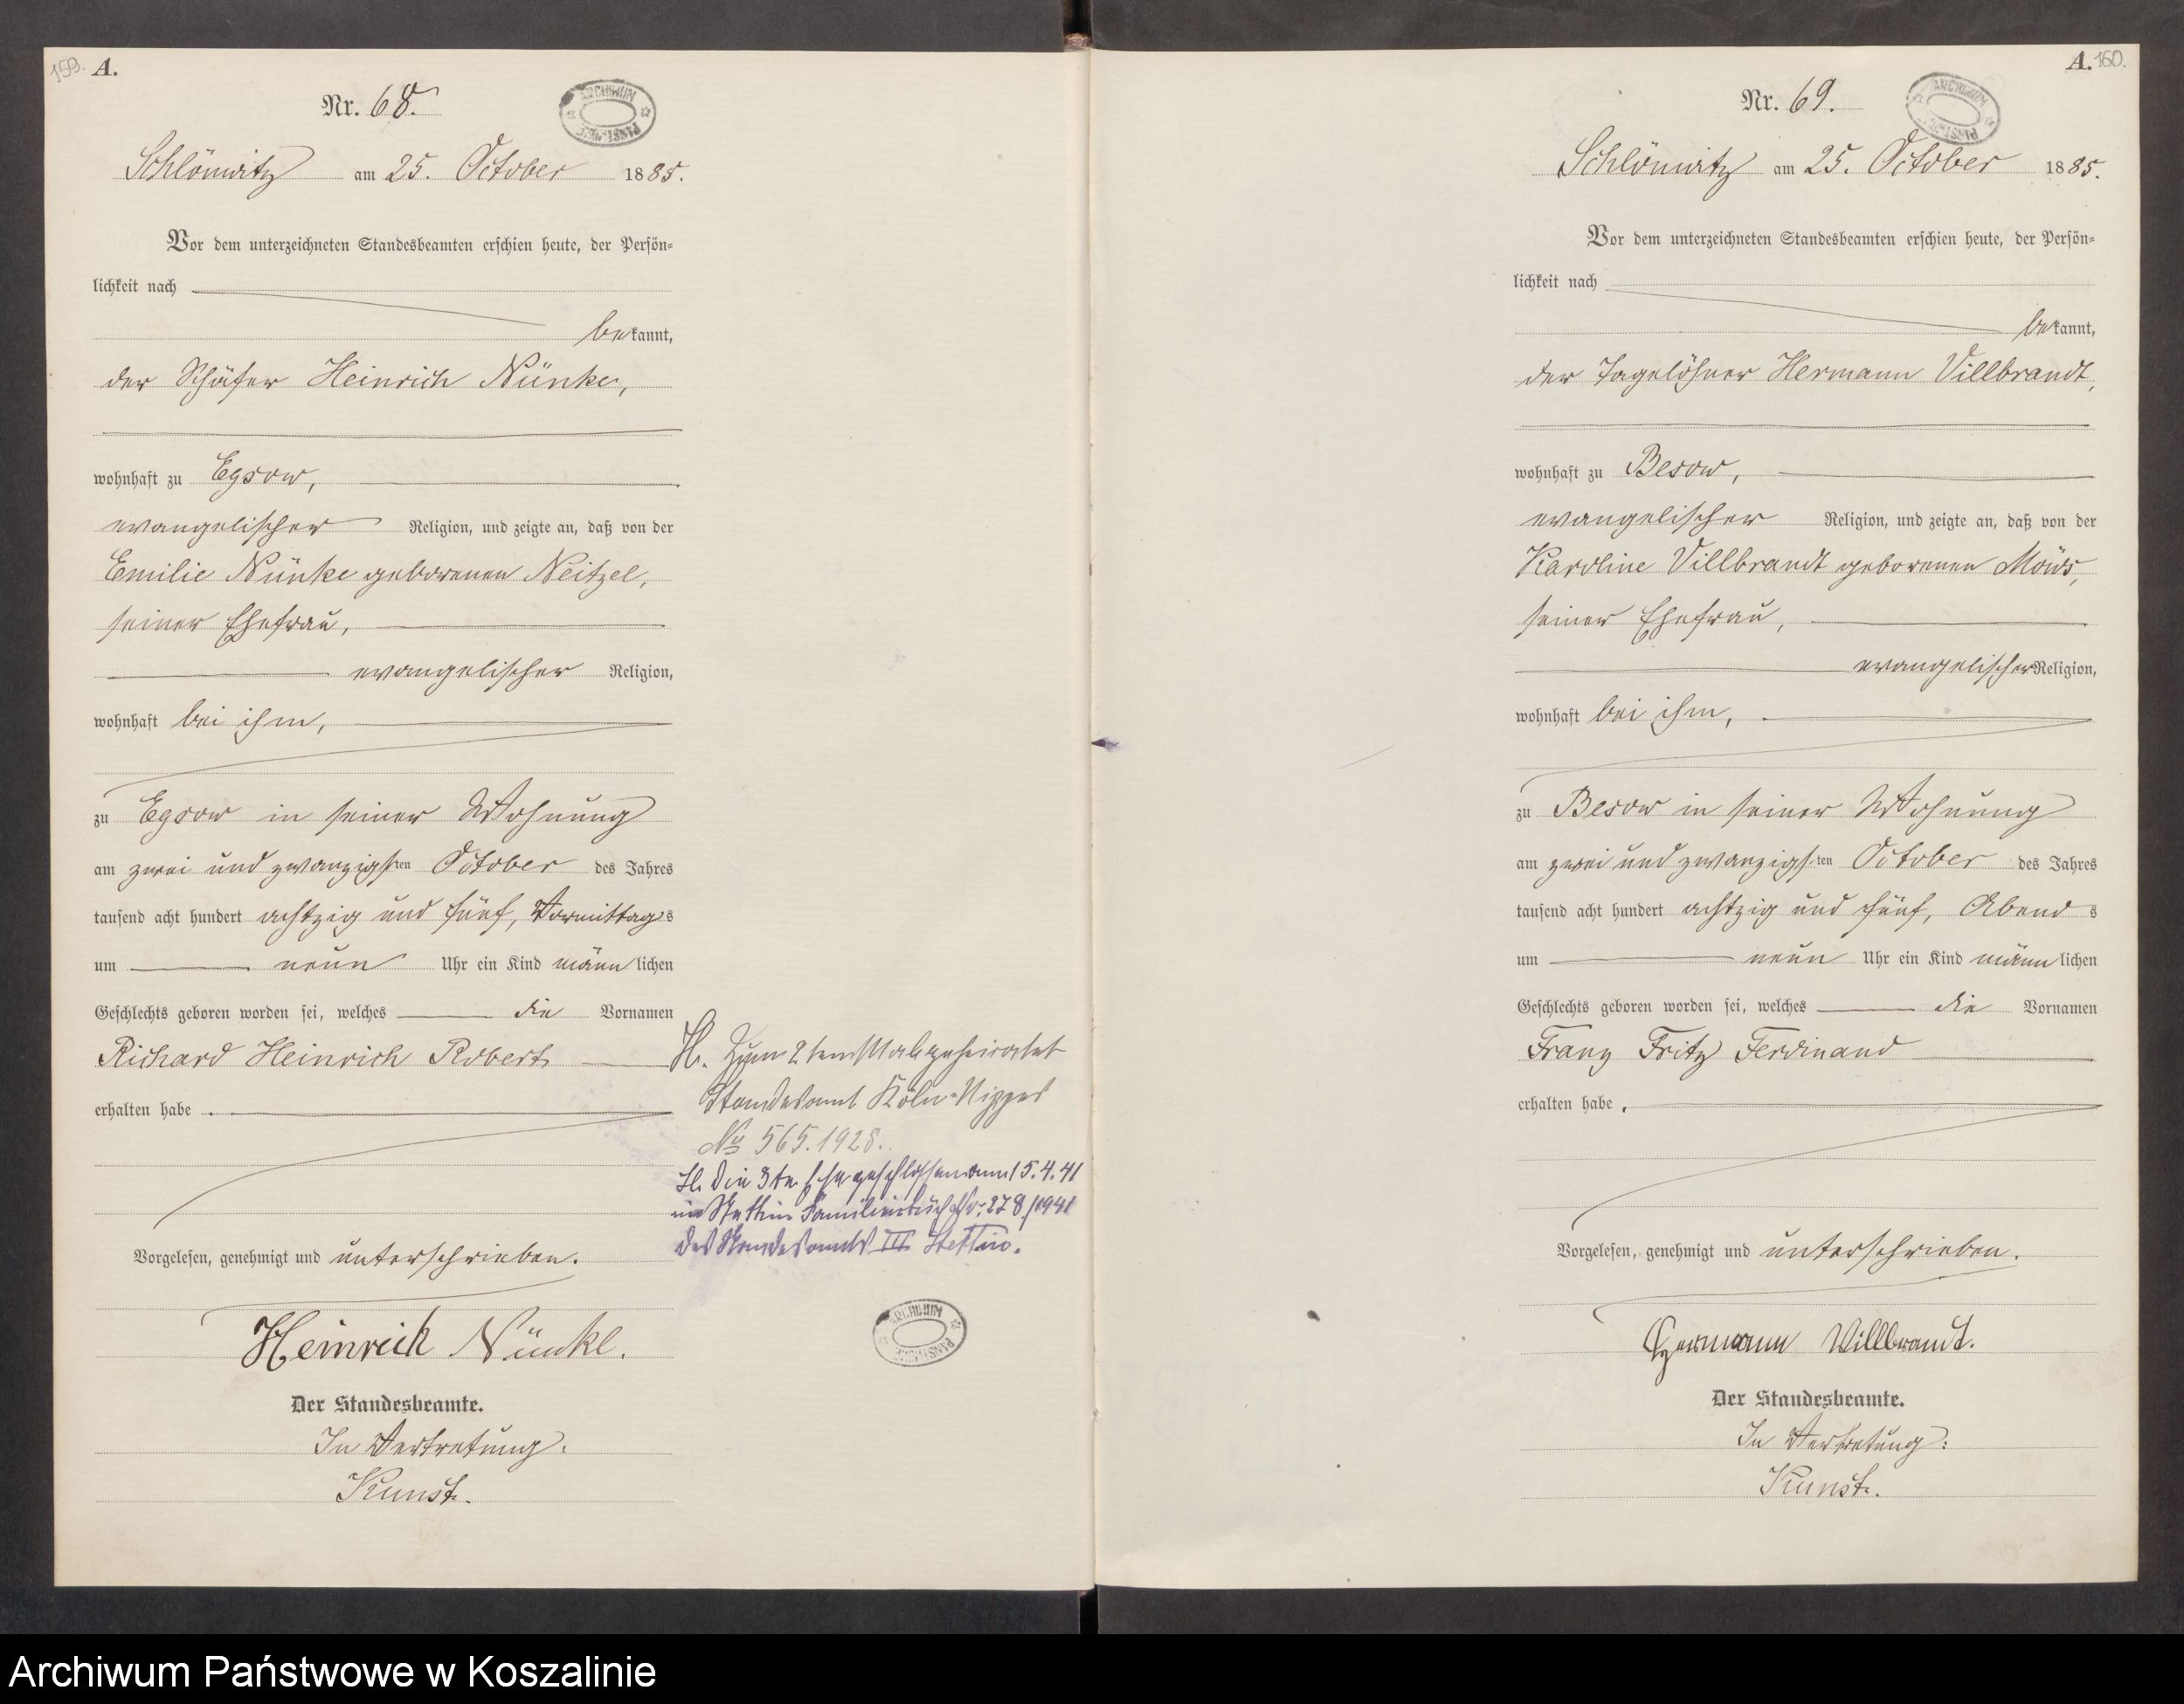 159. A.
Nr. 68.
ARCHIWUM
Schlönwitz am 25. October 1885.
Vor dem unterzeichneten Standesbeamten erschien heute, der Persön-
lichkeit nach
bekannt,
der Schäfer Heinrich Nünke,
wohnhaft zu Egsow,
evangelischer Religion, und zeigte an, daß von der
Emilie Nünke geborenen Neitzel,
seiner Ehefrau,
evangelischer Religion,
wohnhaft bei ihm,
zu Egsow in seiner Wohnung
am zwei und zwanzigsten October des Jahres
tausend acht hundert achtzig und fünf, Vormittags
um neun Uhr ein Kind männlichen
Geschlechts geboren worden sei, welches die Vornamen
Richard Heinrich Robert
erhalten habe.
H. Zum 2ten Male geheiratet
Standesamt Köln-Nippes
No 565.1928.
H. Die 3te Ehe geschlossen am 15.4.41
in Stettin Familienbuch Nr. 278/1941
des Standesamts III Stettin.
Vorgelesen, genehmigt und unterschrieben.
Heinrich Nünke.
ARCHIWUM
Der Standesbeamte.
In Vertretung:
Kunst.
A. 160.
Nr. 69.
ARCHIWUM
Schlönwitz am 25. October 1885.
Vor dem unterzeichneten Standesbeamten erschien heute, der Persön-
lichkeit nach
bekannt,
der Tagelöhner Hermann Villbrandt,
wohnhaft zu Besow,
evangelischer Religion, und zeigte an, daß von der
Karoline Villbrandt geborenen Möws,
seiner Ehefrau,
evangelischer Religion,
wohnhaft bei ihm,
zu Besow in seiner Wohnung
am zwei und zwanzigsten October des Jahres
tausend acht hundert achtzig und fünf, Abends
um neun Uhr ein Kind männlichen
Geschlechts geboren worden sei, welches die Vornamen
Franz Fritz Ferdinand
erhalten habe.
Vorgelesen, genehmigt und unterschrieben.
Hermann Villbrandt.
Der Standesbeamte.
In Vertretung:
Kunst.
Archiwum Państwowe w Koszalinie